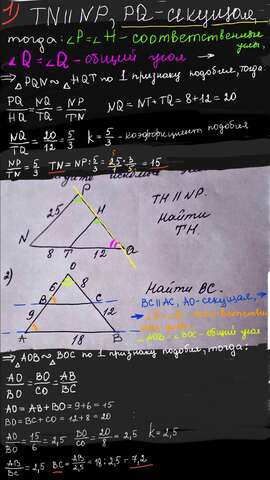 1) TN || NP, PQ - секущая
тогда: ∠P = ∠H - соответственные углы,
∠Q = ∠Q - общий угол ⟶
⟹ △PQN ~ △HQT по 1 признаку подобия, тогда:
PQ/HQ = NQ/TQ = NP/TN NQ = NT + TQ = 8 + 12 = 20
NQ/TQ = 20/12 = 5/3 k = 5/3 - коэффициент подобия
NP/TN = 5/3 TN = NP : 5/3 = 25·3/5 = 15
P
25
H
TH || NP.
Найти
TH.
N 8 T 12 Q
2)
O
6 8
B C
9 12
A 18 B
Найти BC.
BC || AC, AO - секущая, ⟶
углы
∠AOB = ∠BOC - общий угол
⟹ △AOB ~ △BOC по 1 признаку подобия, тогда:
AO/BO = BO/CO = AB/BC
AO = AB + BO = 9 + 6 = 15
BO = BC + CO = 12 + 8 = 20
AO/BO = 15/6 = 2,5 BO/CO = 20/8 = 2,5 k = 2,5
AB/BC = 2,5 BC = AB/2,5 = 18 : 2,5 = 7,2